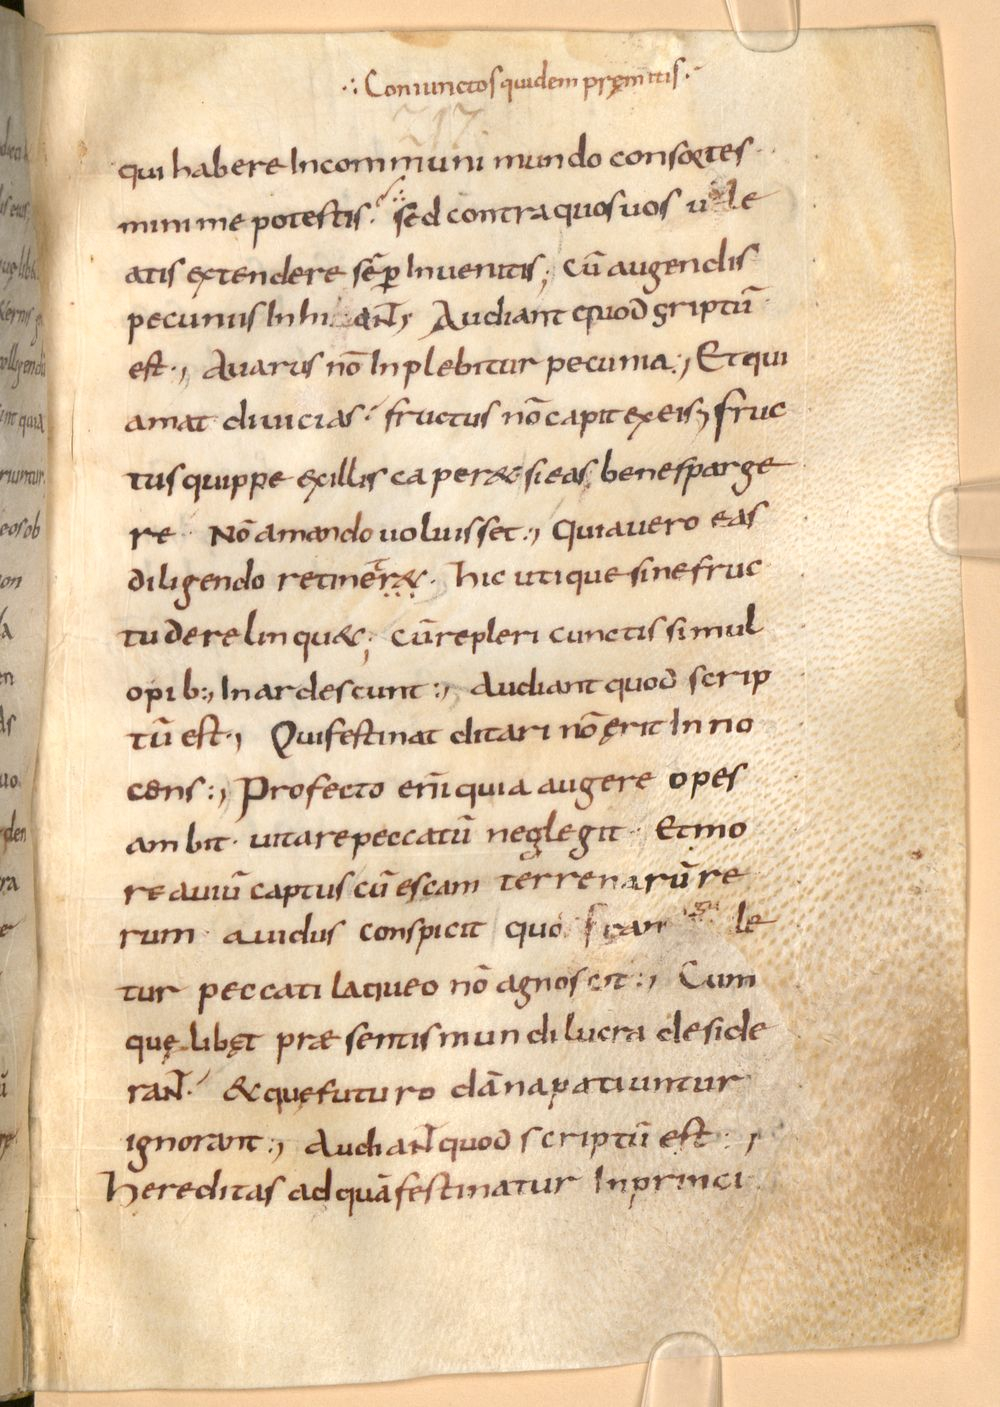 ∴ Coniunctos quidem pręmittis ·
217.
qui habere In communi mundo consortes
minime potestis · sed contra quos uos
atis extendere sēp Inuenitis ; Cū augendis
pecuniis Audiant quod scriptū
est ·, Auarus nō Inplebitur pecunia ·, Et qui
amat diuicias · fructus nō capit ex eis, fruc
tus quippe ex illis caper& si eas bene sparge
re Nō amando uoluisset ·, Quia uero eas
diligendo retiner& · hic utique sine fruc
tu derelinqu&; Cū repleri cunctis simul
opib:, Inardescunt :, Audiant quod scrip
tū est ·, Qui festinat ditari nō ęrit Inno
cens :, Profecto eni quia augere opes
ambit · uitare peccatū neglegit · Et mo
re auiū captus cū escam terrenarū re
rum auidus conspicit quo le
tur peccati laqueo nō agnoscit :, Cum
quęlibęt præsentis mundi lucra deside
rant · & quę futuro dāna patiuntur
ignorant :, Audiant quod scriptū est ·,
hereditas ad quā festinatur In princi